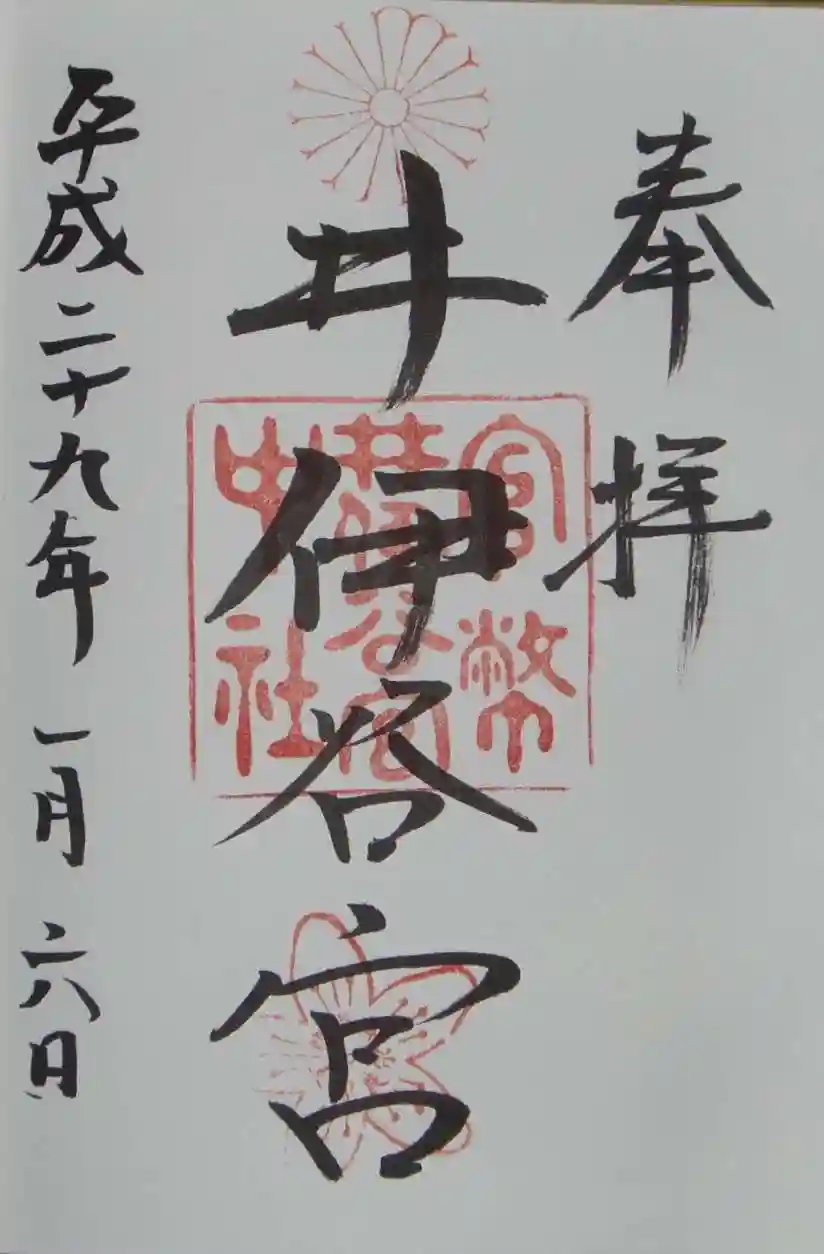 奉拝
井伊谷宮
平成二十九年一月六日
官幣
井伊谷宮
中社